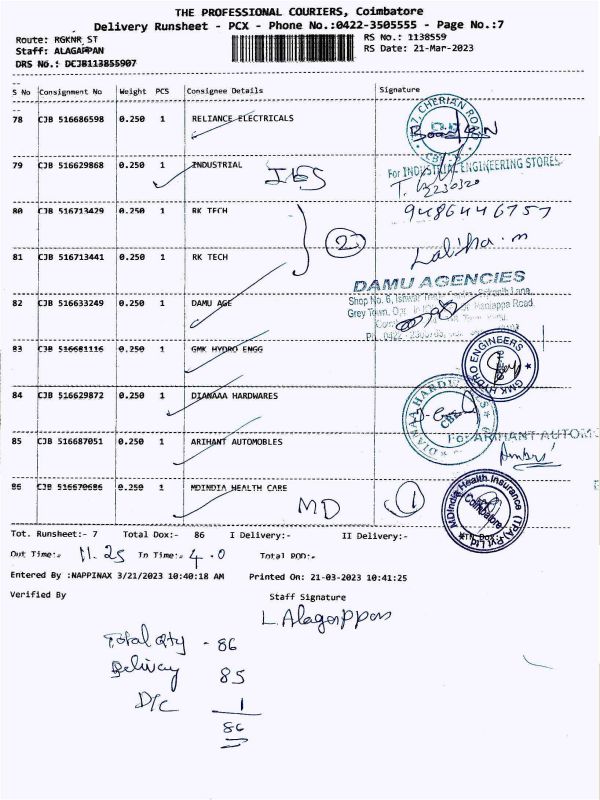 THE PROFESSIONAL COURIERS, Coimbatore
Delivery Runsheet - PCX - Phone No.:0422-3505555 - Page No.:7
Route: RGKNR_ST
RS No.: 1138559
Staff: ALAGAPPAN
RS Date: 21-Mar-2023
DRS No.: DCJB113855907
S No Consignment No Weight PCS Consignee Details Signature
78 CJB 516686598 0.250 1 RELIANCE ELECTRICALS
CHERIAN ROAD
79 CJB 516629868 0.250 1 INDUSTRIAL
For INDUSTRIAL ENGINEERING STORES
IES
80 CJB 516713429 0.250 1 RK TECH
9486446757
2
Lalitha.m
81 CJB 516713441 0.250 1 RK TECH
DAMU AGENCIES
82 CJB 516633249 0.250 1 DAMU AGE
Shop No. 6,
Grey Town,
83 CJB 516681116 0.250 1 GMK HYDRO ENGG
GMK HYDRO ENGINEERS
84 CJB 516629872 0.250 1 DIANAAA HARDWARES
DIANAA HARDWARES
CBE
85 CJB 516687051 0.250 1 ARIHANT AUTOMOBLES
For ARIHANT AUTOMO
86 CJB 516670686 0.250 1 MDINDIA HEALTH CARE
MD
1
MDIndia Health Insurance (TPA) Pvt Ltd
Coimbatore
Tot. Runsheet:- 7 Total Dox:- 86 I Delivery:- II Delivery:-
Out Time:- 11.25 In Time:- 4.0 Total POD:-
Entered By :NAPPINAX 3/21/2023 10:40:18 AM Printed On: 21-03-2023 10:41:25
Verified By Staff Signature
L.Alagappan
Total Qty - 86
Delivery 85
D/C 1
86